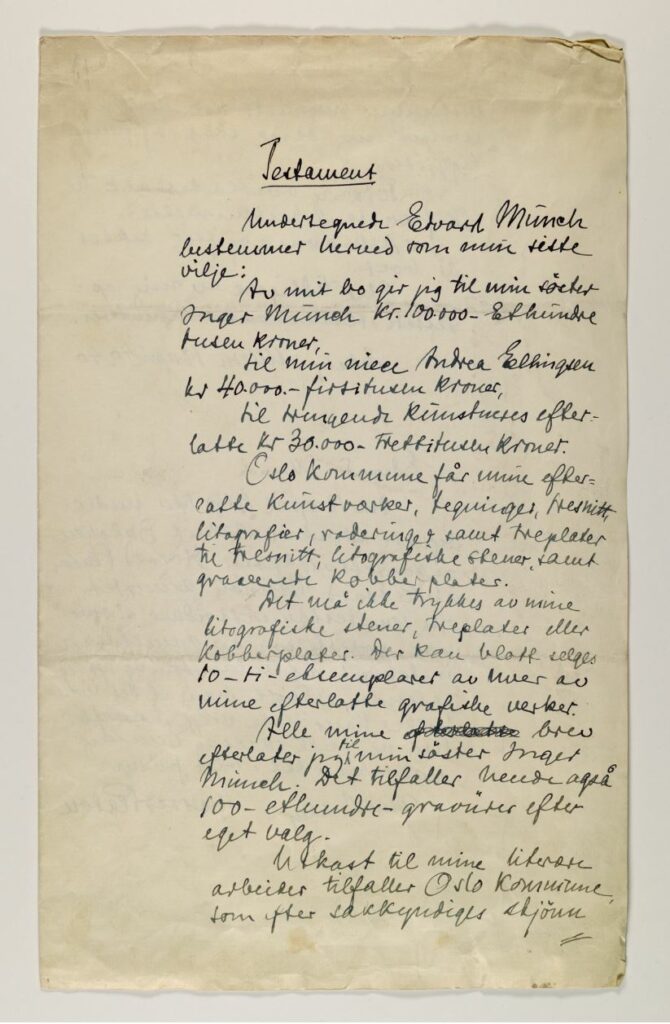 Testament
Undertegnede Edvard Munch
bestemmer herved som min siste
vilje:
Av mit bo gir jeg til min søster
Inger Munch kr. 100000- Ethundre
tusen kroner,
til min niece Andrea Ellingsen
kr 40.000.- firtitusen kroner,
til trengende kunstneres efter=
latte kr 30.000- Trettitusen kroner.
Oslo kommune får mine efter=
latte kunstværker, tegninger, tresnitt,
litografier, raderinger samt treplater
til tresnitt, litografiske stener, samt
graverede kobberplater.
Det må ikke trykkes av mine
litografiske stener, treplater eller
kobberplater. Der kan blott selges
10-ti-eksemplarer av hver av
mine efterlatte grafiske verker.
Alle mine efterlatte brev
efterlater jeg til min søster Inger
Munch. Det tilfaller hende også
100-ethundre-gravürer efter
eget valg.
Utkast til mine literære
arbeider tilfaller Oslo kommune,
som efter sakkyndiges skjönn